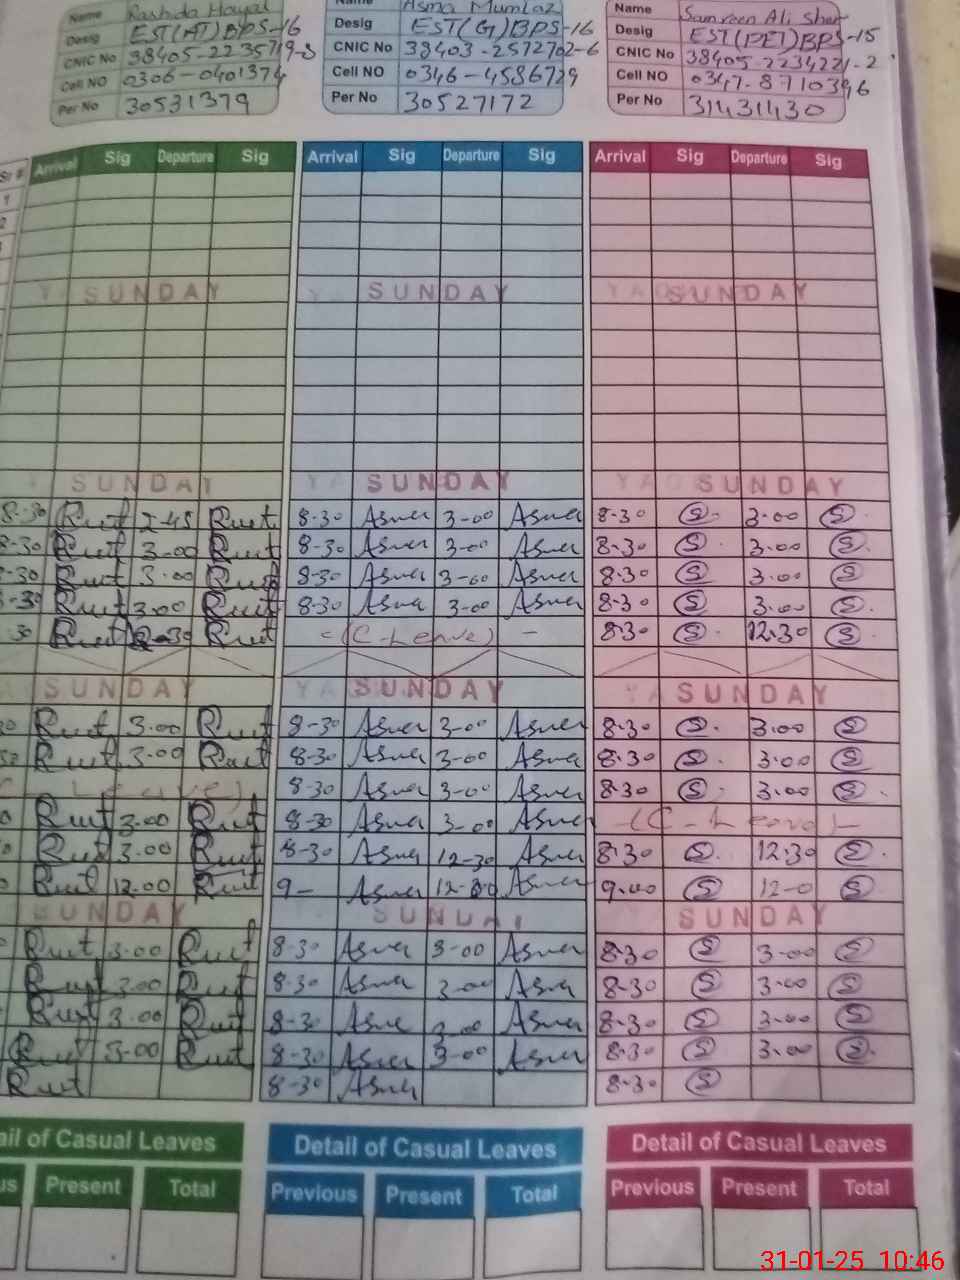 Name Rashida Hayat Name Asma Mumtaz Name Samreen Ali Sher
Desig EST(AT)BPS-16 Desig EST(G)BPS-16 Desig EST(PET)BPS-15
CNIC No 38405-2235719-8 CNIC No 38403-2572702-6 CNIC No 38405-2234221-2
Cell NO 0306-0401374 Cell NO 0346-4586729 Cell NO 0347-8710396
Per No 30531379 Per No 30527172 Per No 31431430
Sr # Arrival Sig Departure Sig Arrival Sig Departure Sig Arrival Sig Departure Sig
1
2
SUNDAY SUNDAY SUNDAY
SUNDAY SUNDAY SUNDAY
8-30 Rwt 2-45 Rwt 8-30 Asma 3-00 Asma 8-30 S 3.00 S
8-30 Rwt 3.00 Rwt 8-30 Asma 3-00 Asma 8-30 S 3.00 S
-30 Rwt 3.00 Rwt 8-30 Asma 3-00 Asma 8-30 S 3.00 S
-30 Rwt 3.00 Rwt 8-30 Asma 3-00 Asma 8-30 S 3.00 S
30 Rwt Rwt -(C-Leave)- 8-30 S 12.30 S
SUNDAY SUNDAY SUNDAY
Rwt 3.00 Rwt 8-30 Asma 3-00 Asma 8-30 S 3.00 S
Rwt 3.00 Rwt 8-30 Asma 3-00 Asma 8-30 S 3.00 S
Leave) 8-30 Asma 3-00 Asma 8-30 S 3.00 S
0 Rwt 3.00 Rwt 8-30 Asma 3-00 Asma -(C-Leave)-
Rwt 3.00 Rwt 8-30 Asma 12-30 Asma 8-30 S 12.30 S
Rwt 12.00 Rwt 9- Asma Asma 9.00 S 12-0 S
SUNDAY SUNDAY SUNDAY
Rwt 3.00 Rwt 8-30 Asma 3-00 Asma 8-30 S 3-00 S
Rwt 3.00 Rwt 8-30 Asma 3-00 Asma 8-30 S 3-00 S
Rwt 3.00 Rwt 8-30 Asma 3-00 Asma 8-30 S 3-00 S
Rwt 3-00 Rwt 8-30 Asma 3-00 Asma 8-30 S 3.00 S
Rwt 8-30 Asma 8-30 S
ail of Casual Leaves Detail of Casual Leaves Detail of Casual Leaves
us Present Total Previous Present Total Previous Present Total
31-01-25 10:46